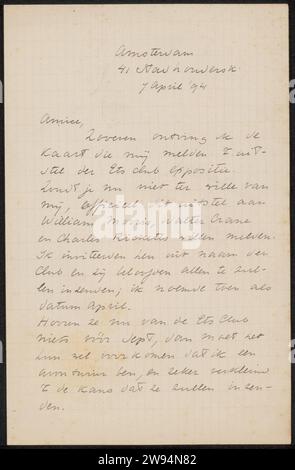 Amsterdam
41 Stadhoudersk
7 April '94
Amice,
Zooeven ontving ik de
kaart die mij melden 't uit-
stel der Ets club oppositie.
Zoudt je nu niet ter wille van
mij, officieel 't uitstel aan
William Morris, Walter Crane
en Charles Ricketts willen melden.
Ik inviteerden hen uit naam der
Club en zij beloofden allen te zul-
len inzenden; ik noemde toen als
datum April.
Hooren ze nu van de Ets Club
niets vóór Sept, dan moet het
hun zel voorkomen dat ik een
avonturier ben, en zeker verkleind
't de kans dat ze zullen inzen-
den.
alamy
Image ID: 2W94N82
www.alamy.com